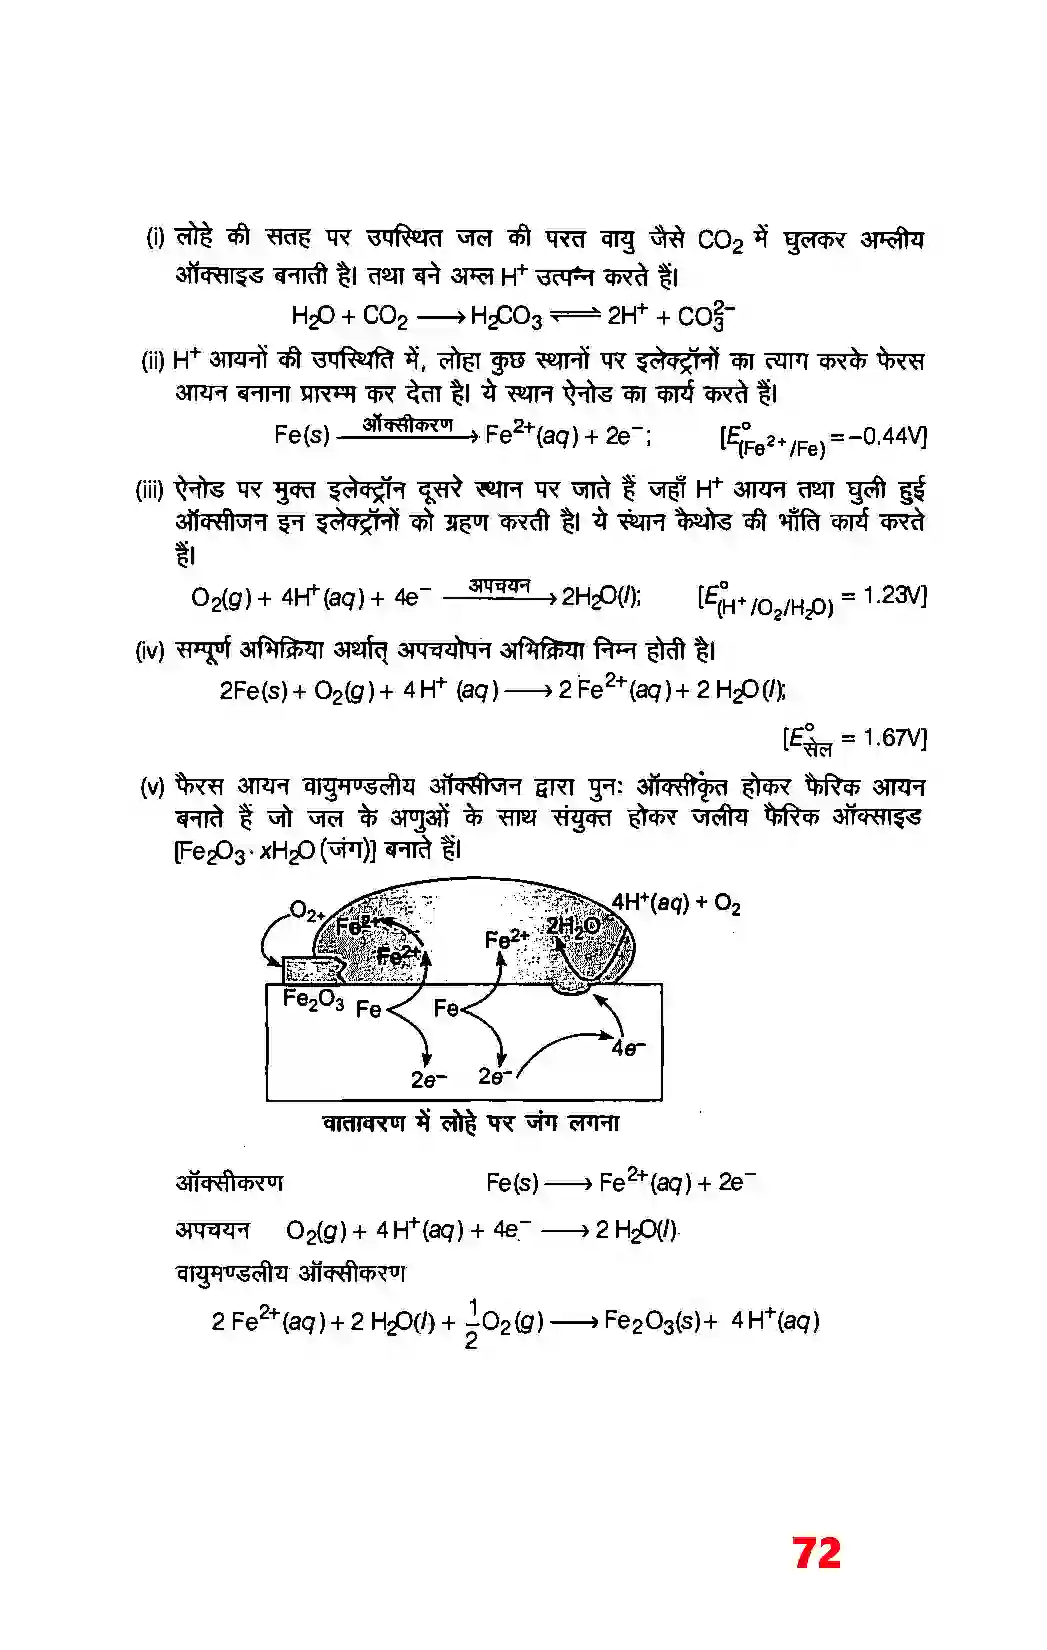 (i) लोहे की सतह पर उपस्थित जल की परत वायु जैसे CO₂ में घुलकर अम्लीय
ऑक्साइड बनाती है। तथा बने अम्ल H⁺ उत्पन्न करते हैं।
H₂O + CO₂ ⟶ H₂CO₃ ⇌ 2H⁺ + CO₃²⁻
(ii) H⁺ आयनों की उपस्थिति में, लोहा कुछ स्थानों पर इलेक्ट्रॉनों का त्याग करके फेरस
आयन बनाना प्रारम्भ कर देता है। ये स्थान ऐनोड का कार्य करते हैं।
Fe(s) —ऑक्सीकरण→ Fe²⁺(aq) + 2e⁻; [E°(Fe²⁺/Fe) = −0.44V]
(iii) ऐनोड पर मुक्त इलेक्ट्रॉन दूसरे स्थान पर जाते हैं जहाँ H⁺ आयन तथा घुली हुई
ऑक्सीजन इन इलेक्ट्रॉनों को ग्रहण करती है। ये स्थान कैथोड की भाँति कार्य करते
हैं।
O₂(g) + 4H⁺(aq) + 4e⁻ —अपचयन→ 2H₂O(l); [E°(H⁺/O₂/H₂O) = 1.23V]
(iv) सम्पूर्ण अभिक्रिया अर्थात् अपचयोपन अभिक्रिया निम्न होती है।
2Fe(s) + O₂(g) + 4H⁺(aq) ⟶ 2Fe²⁺(aq) + 2H₂O(l);
[E°सेल = 1.67V]
(v) फैरस आयन वायुमण्डलीय ऑक्सीजन द्वारा पुनः ऑक्सीकृत होकर फैरिक आयन
बनाते हैं जो जल के अणुओं के साथ संयुक्त होकर जलीय फैरिक ऑक्साइड
[Fe₂O₃·xH₂O (जंग)] बनाते हैं।
4H⁺(aq) + O₂
O₂₊
Fe²⁺ 2H₂O
Fe²⁺ Fe²⁺
Fe₂O₃ Fe Fe
4e⁻
2e⁻ 2e⁻
वातावरण में लोहे पर जंग लगना
ऑक्सीकरण Fe(s) ⟶ Fe²⁺(aq) + 2e⁻
अपचयन O₂(g) + 4H⁺(aq) + 4e⁻ ⟶ 2H₂O(l)
वायुमण्डलीय ऑक्सीकरण
2Fe²⁺(aq) + 2H₂O(l) + 1/2 O₂(g) ⟶ Fe₂O₃(s) + 4H⁺(aq)
72